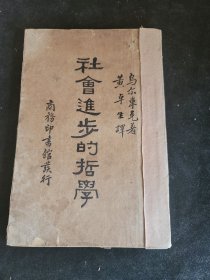 烏尔韋克著
黃卓生譯
社會進步的哲學
商務印書館發行